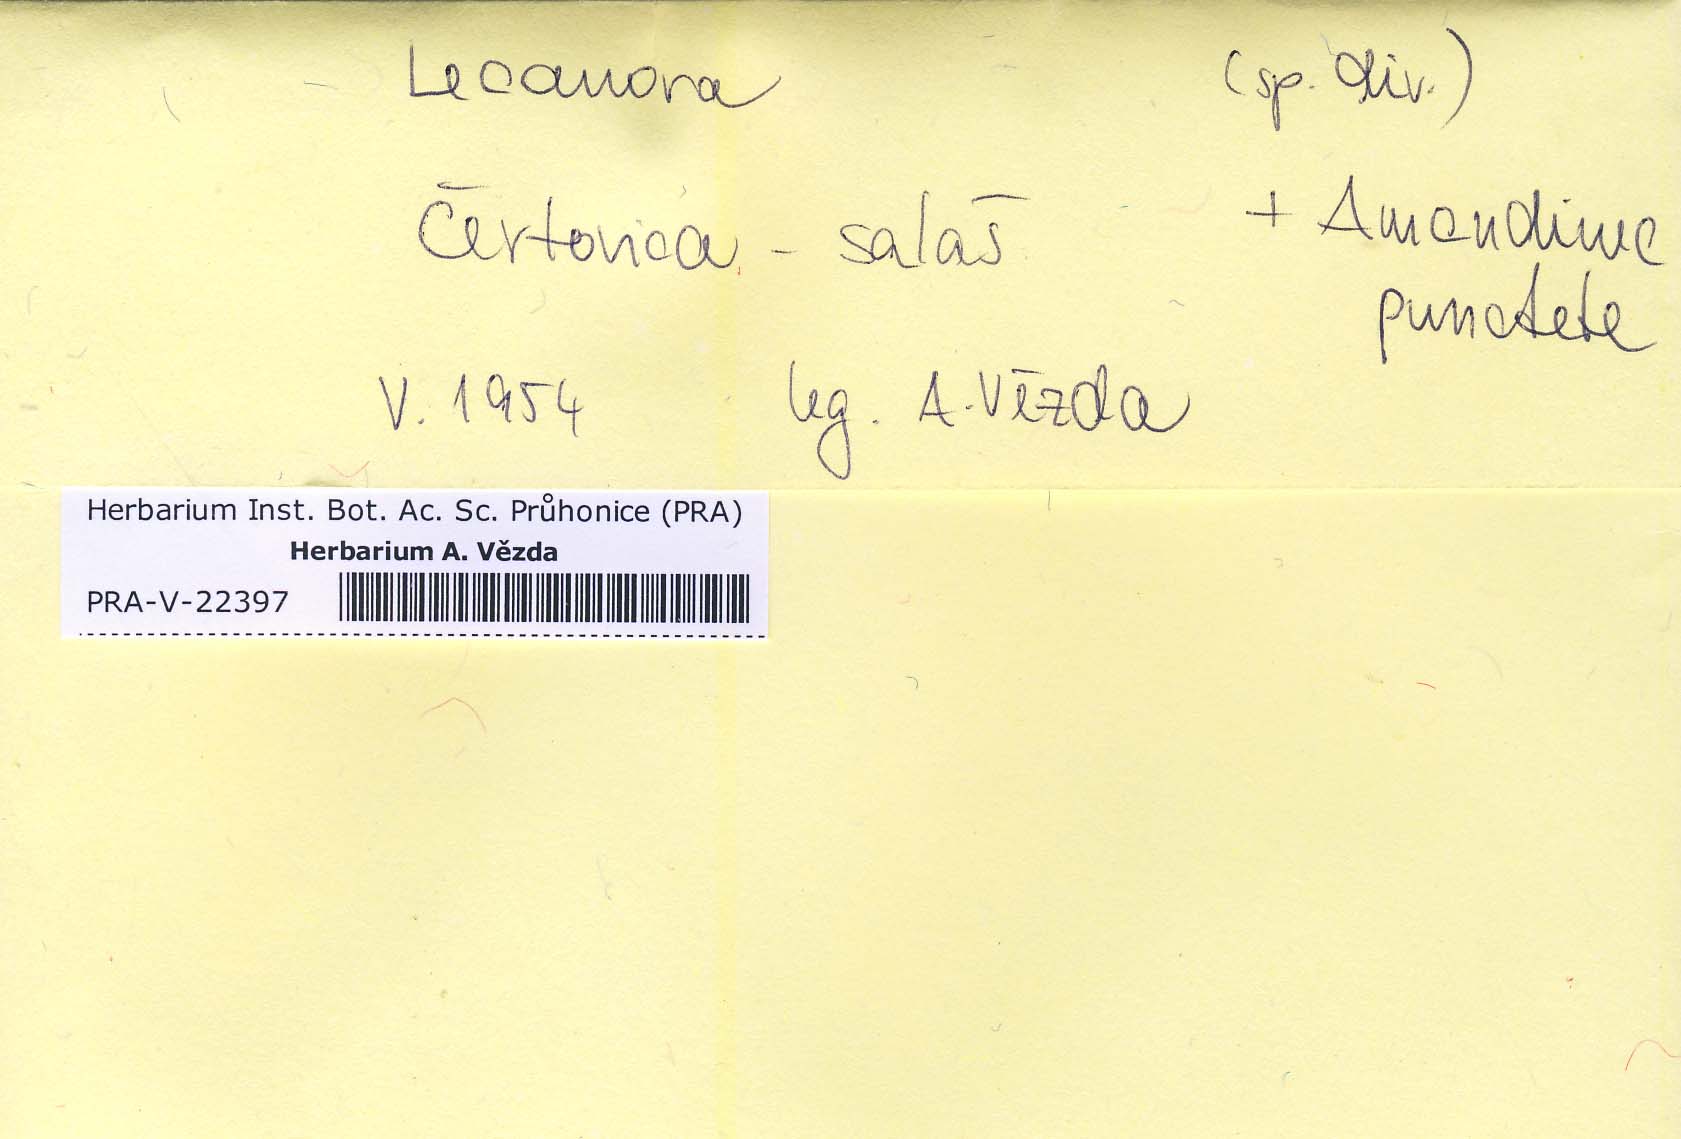 Lecanora (sp. div.)
Čertovica - salaš + Amandinea
punctata
V. 1954 leg. A. Vězda
Herbarium Inst. Bot. Ac. Sc. Průhonice (PRA)
Herbarium A. Vězda
PRA-V-22397